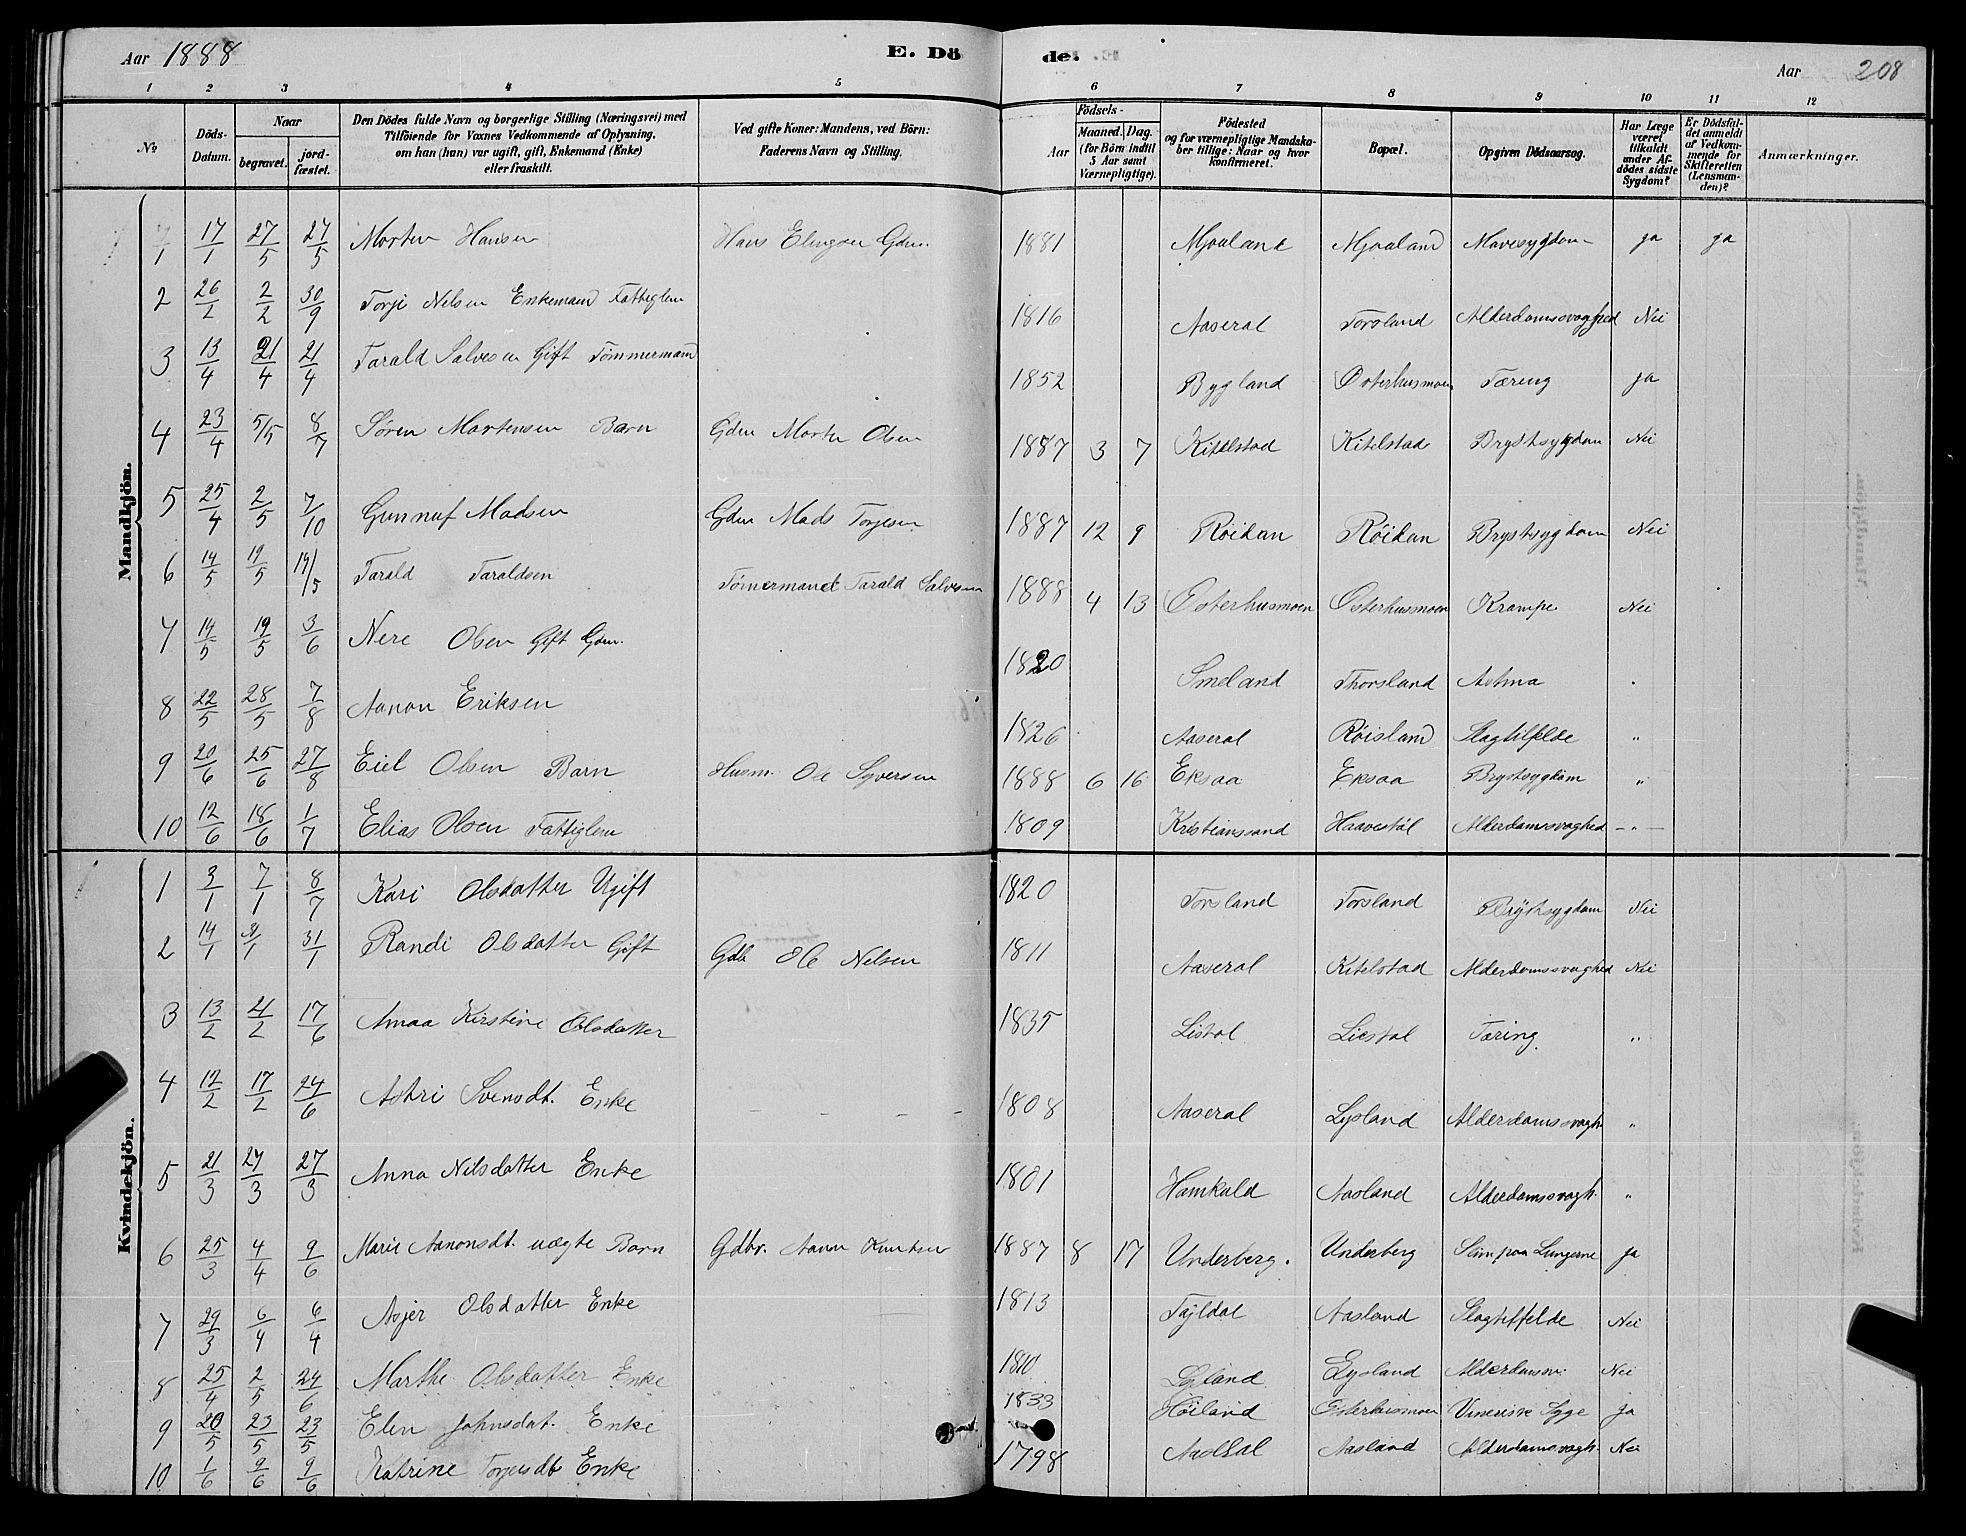 Aar 1888 E. Dö de. Aar 208
1 2 3 4 5 6 7 8 9 10 11 12
№ Döds-Datum. Naar begravet. jord-fæstet. Den Dödes fulde Navn og borgerlige Stilling (Næringsvei) med Tilföiende for Voxnes Vedkommende af Oplysning, om han (hun) var ugift, gift, Enkemand (Enke) eller fraskilt. Ved gifte Koner: Mandens, ved Börn: Faderens Navn og Stilling. Födsels- Aar Maaned. Dag. (for Börn indtil 5 Aar samt Værnepligtige). Födested og for værnepligtige Mandskaber tillige: Naar og hvor konfirmeret. Bopæl. Opgiven Dödsaarsag. Har Læge været tilkaldt under Afdödes sidste Sygdom? Er Dödsfaldet anmeldt af Vedkommende for Skifteretten (Lensmanden)? Anmærkninger.
Mandkjön.
1 17/1 27/5 27/5 Morten Hansen Hans Elingsen Gdm. 1881 Mjaaland Mjaaland Mavesygdom ja ja
2 26/1 2/2 30/9 Torje Nelsen Enkemand Fattiglem 1816 Aaseral Torsland Alderdomssvaghed Nei
3 13/4 21/4 21/4 Tarald Salvesen Gift Tømmermand 1852 Bygland Osterhusmoen Tæring ja
4 23/4 5/5 8/7 Søren Mortensen Barn Gdm Morten Olsen 1887 3 7 Kitelstad Kitelstad Brystsygdom Nei
5 25/4 2/5 7/10 Gunnuf Madsen Gdm Mads Torjesen 1887 12 9 Røidan Røidan Brystsygdom Nei
6 14/5 19/5 19/5 Tarald Taraldsen Tømermand Tarald Salvesen 1888 4 13 Osterhusmoen Osterhusmoen Krampe Nei
7 14/5 19/5 3/6 Nere Olsen Gift Gdm. 1820 Smeland Thorsland Astma
8 22/5 28/5 7/8 Aanon Eriksen 1826 Aaseral Røisland Slagtilfelde "
9 20/6 25/6 27/8 Eiel Olsen Barn Husm. Ole Syversen 1888 6 16 Eksaa Eksaa Brystsygdom "
10 12/6 18/6 1/7 Elias Olsen Fattiglem 1809 Kristianssand Haavestøl Alderdomssvaghed — " —
Kvindekjön.
1 3/1 7/1 8/7 Kari Olsdatter Ugift 1820 Torsland Torsland Brystsygdom Nei
2 14/1 31/1 31/1 Randi Olsdatter Gift Gdb Ole Nelsen 1811 Aaseral Kitelstad Alderdomssvaghed Nei
3 13/2 21/2 17/6 Anaa Kirstine Olsdatter 1835 Listøl Liestøl Tæring "
4 12/2 17/2 24/6 Astri Svensdt. Enke — — — — 1808 Aaseral Lysland Alderdomssvagh "
5 21/3 27/3 27/3 Anna Nilsdatter Enke 1801 Hamkald Aasland Alderdomssvagh. "
6 25/3 4/4 9/6 Marie Aanonsdt. uægte Barn Gdbr. Aanon Knutsen 1887 8 17 Underberg. Underberg Slim paa Lungerne ja
7 29/3 6/4 6/4 Asjer Olsdatter Enke 1813 Aasland Slagtilfelde Nei
8 25/4 2/5 24/6 Marthe Olsdatter Enke 1810 Lysland Alderdomsv. Nei
9 20/5 23/5 23/5 Elen Johnsdat. Enke 1833 Høiland Osterhusmoen Veneriske Syge ja
10 1/6 9/6 9/6 Katrine Torjersdt Enke 1798 Aasland Alderdomsvagh. Nei